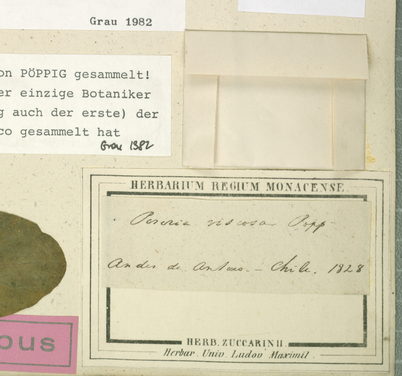 Grau 1982
on PÖPPIG gesammelt!
er einzige Botaniker
g auch der erste) der
co gesammelt hat
Grau 1982
HERBARIUM REGIUM MONACENSE.
viscosa Popp
Andes de Antuco. - Chile. 1828
HERB. ZUCCARINII
Herbar. Univ. Ludov. Maximil.
pus